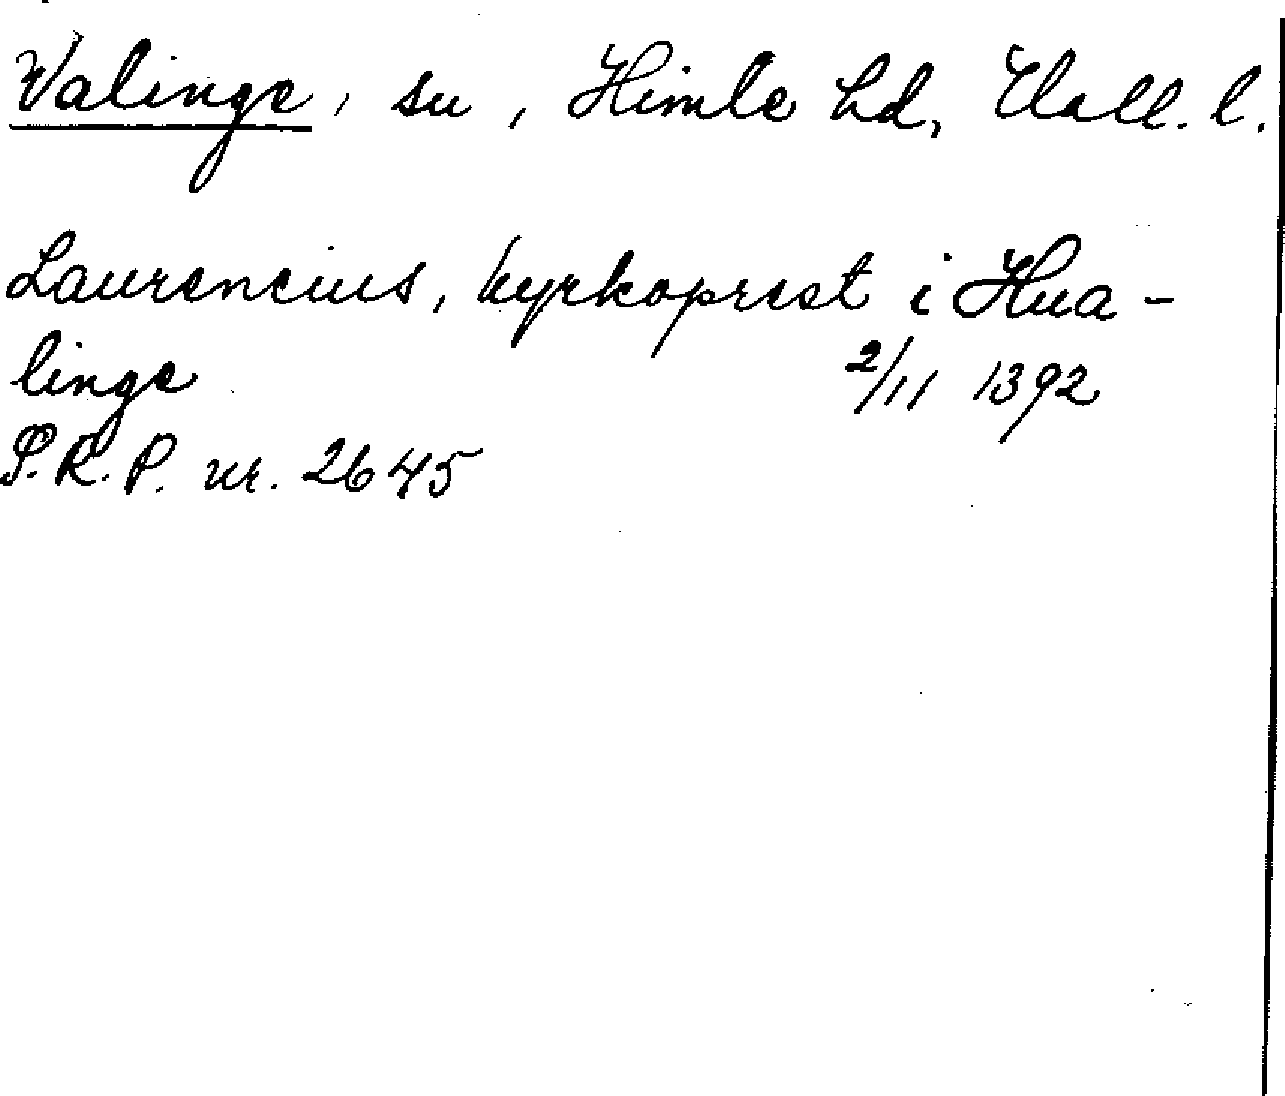 Valinge, sn, Himle hd, Hall. l.
Laurencius, kyrkoprest i Hua-
linge 2/11 1392
S.R.P. nr. 2645